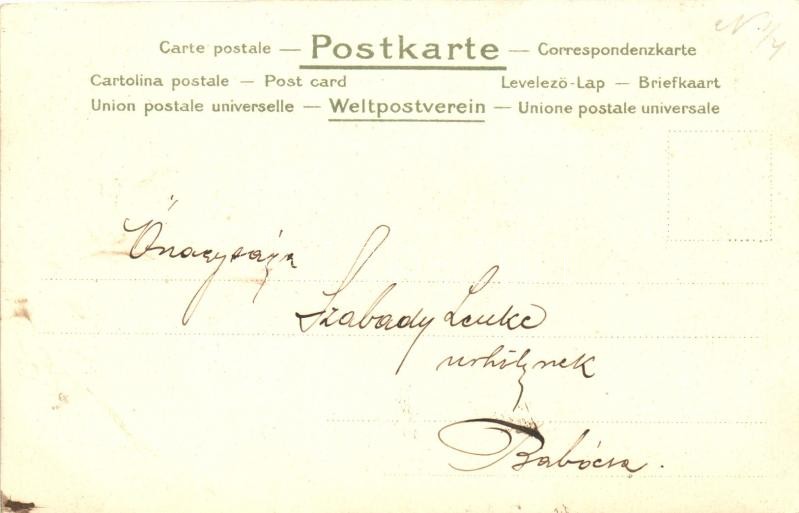 Carte postale — Postkarte — Correspondenzkarte
Cartolina postale — Post card Levelező-Lap — Briefkaart
Union postale universelle — Weltpostverein — Unione postale universale
Őnagysága
Szabady Lenke
urhölgynek
Babócsa.